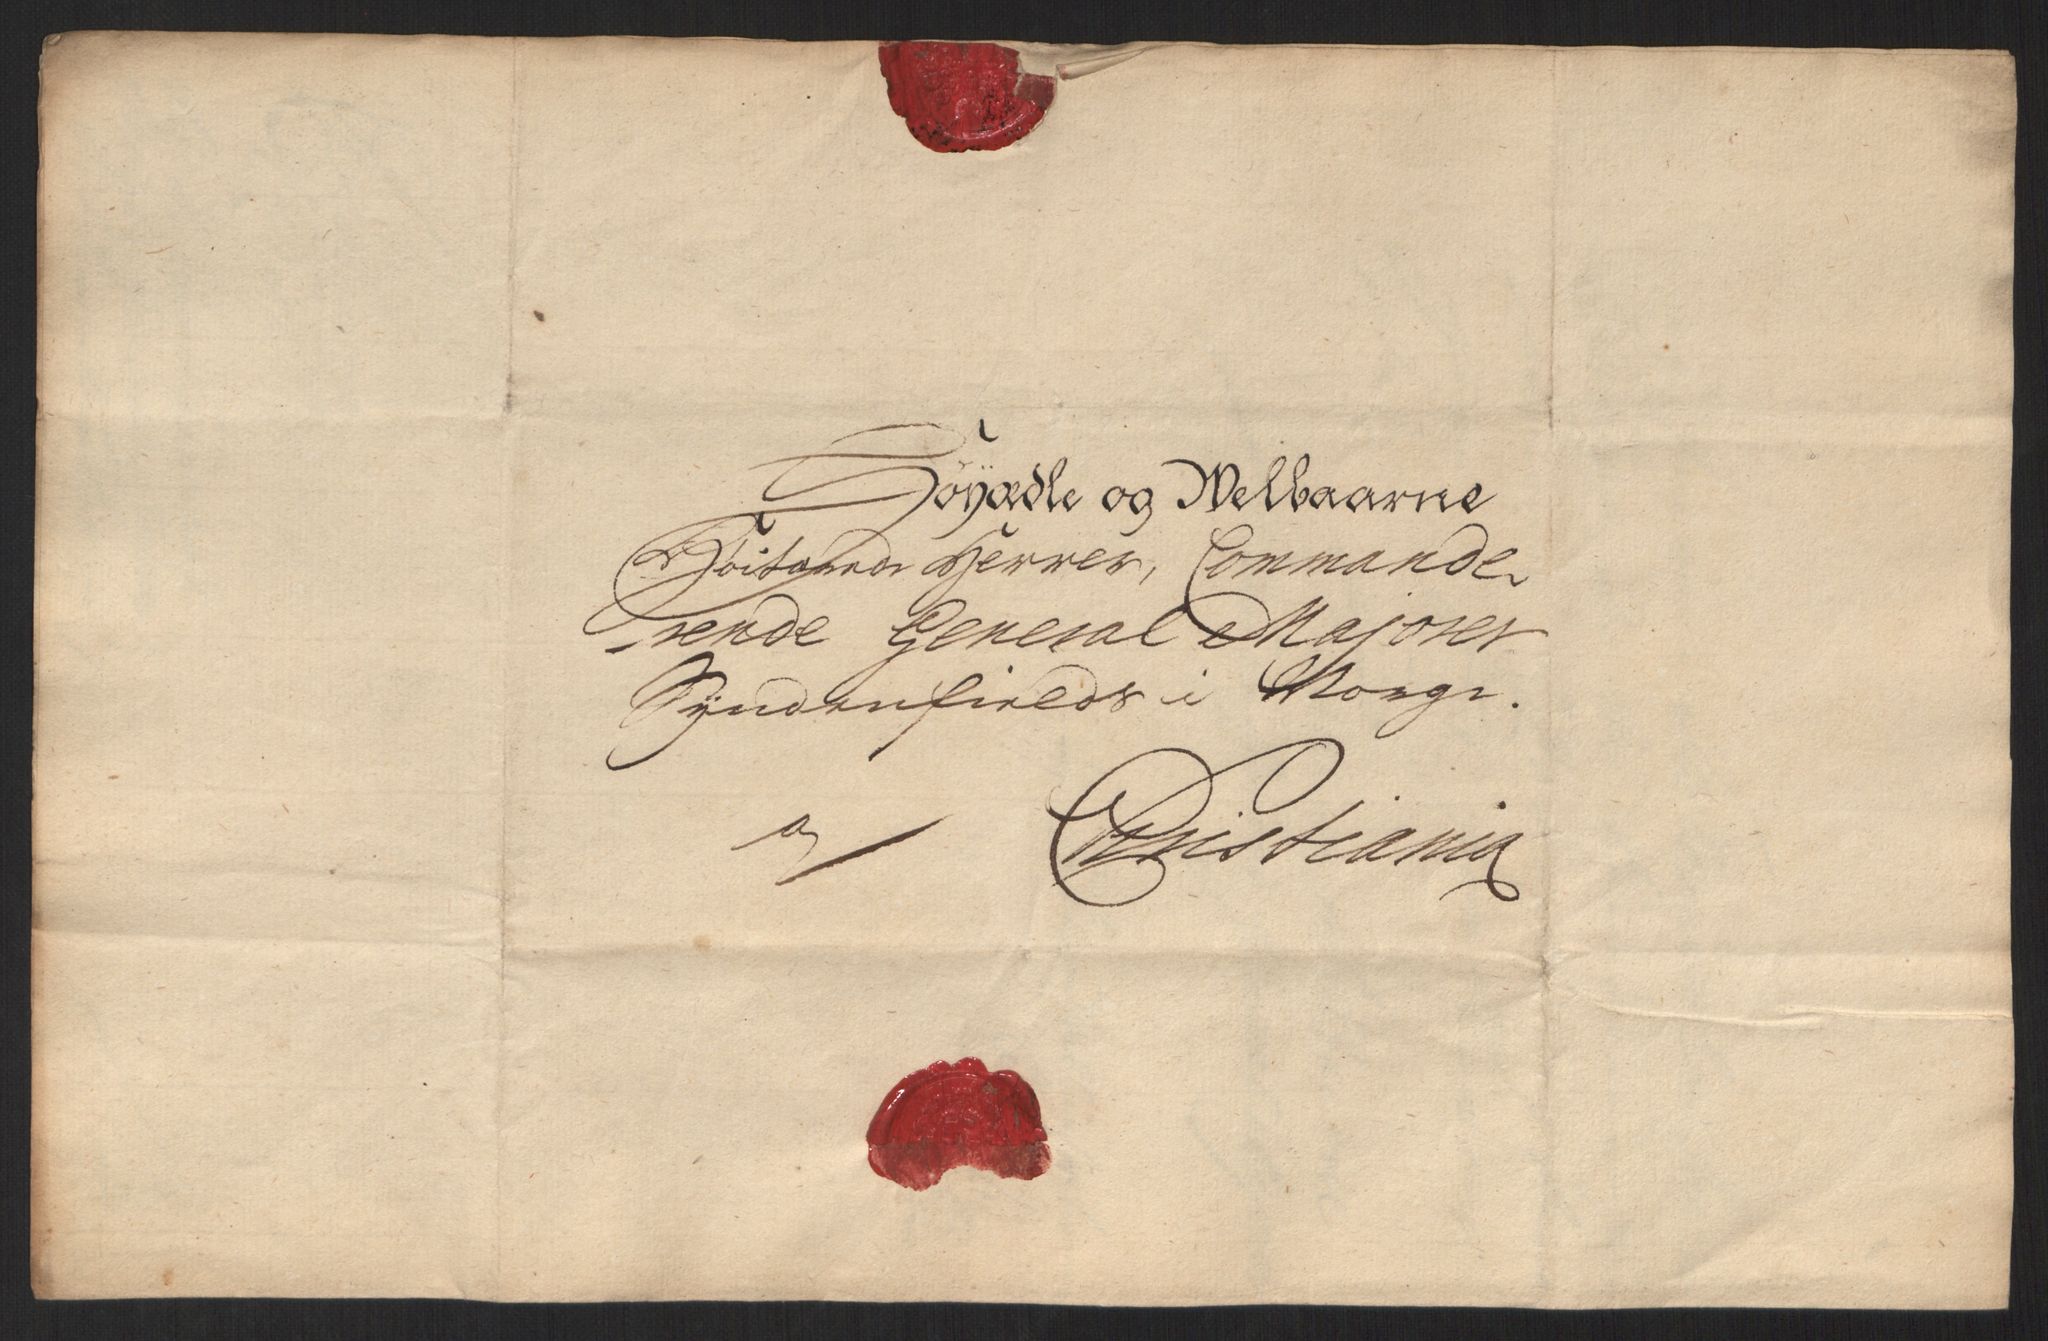 Höÿædle og Welbaarne
Höitærede Herrer, Commande-
rende General Majorer
Syndenfields i Norge.
a
Christiania